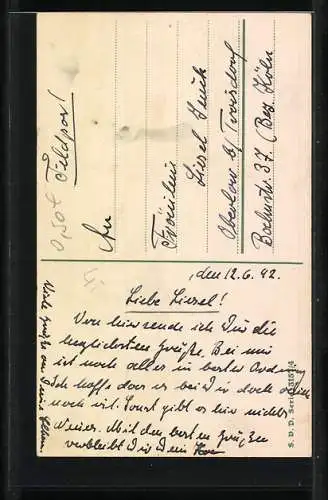 Feldpost!
An
Fräulein
Liesel
Oberlar b/ Troisdorf
37 (Bez. Köln
, den 12.6.42.
Liebe Liesel!
Von hier sende ich Dir die
herzlichsten Grüße. Bei mir
ist noch alles in bester Ordnung
Ich hoffe das es bei Dir doch
noch ist. Sonst gibt es hier nichts
Neues. Mit den besten Grüßen
verbleibt Dir Dein
Viele Grüße an Deine Eltern
S. V. D. Serie